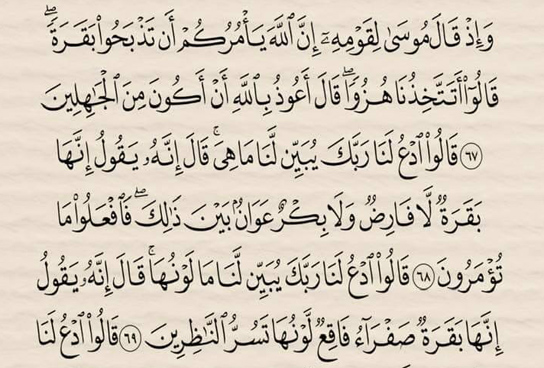 وَإِذْ قَالَ مُوسَىٰ لِقَوْمِهِۦٓ إِنَّ ٱللَّهَ يَأْمُرُكُمْ أَن تَذْبَحُوا۟ بَقَرَةًۖ
قَالُوٓا۟ أَتَتَّخِذُنَا هُزُوًاۖ قَالَ أَعُوذُ بِٱللَّهِ أَنْ أَكُونَ مِنَ ٱلْجَٰهِلِينَ
٦٧ قَالُوا۟ ٱدْعُ لَنَا رَبَّكَ يُبَيِّن لَّنَا مَا هِىَۚ قَالَ إِنَّهُۥ يَقُولُ إِنَّهَا
بَقَرَةٌ لَّا فَارِضٌ وَلَا بِكْرٌ عَوَانٌۢ بَيْنَ ذَٰلِكَۖ فَٱفْعَلُوا۟ مَا
تُؤْمَرُونَ ٦٨ قَالُوا۟ ٱدْعُ لَنَا رَبَّكَ يُبَيِّن لَّنَا مَا لَوْنُهَاۚ قَالَ إِنَّهُۥ يَقُولُ
إِنَّهَا بَقَرَةٌ صَفْرَآءُ فَاقِعٌ لَّوْنُهَا تَسُرُّ ٱلنَّٰظِرِينَ ٦٩ قَالُوا۟ ٱدْعُ لَنَا